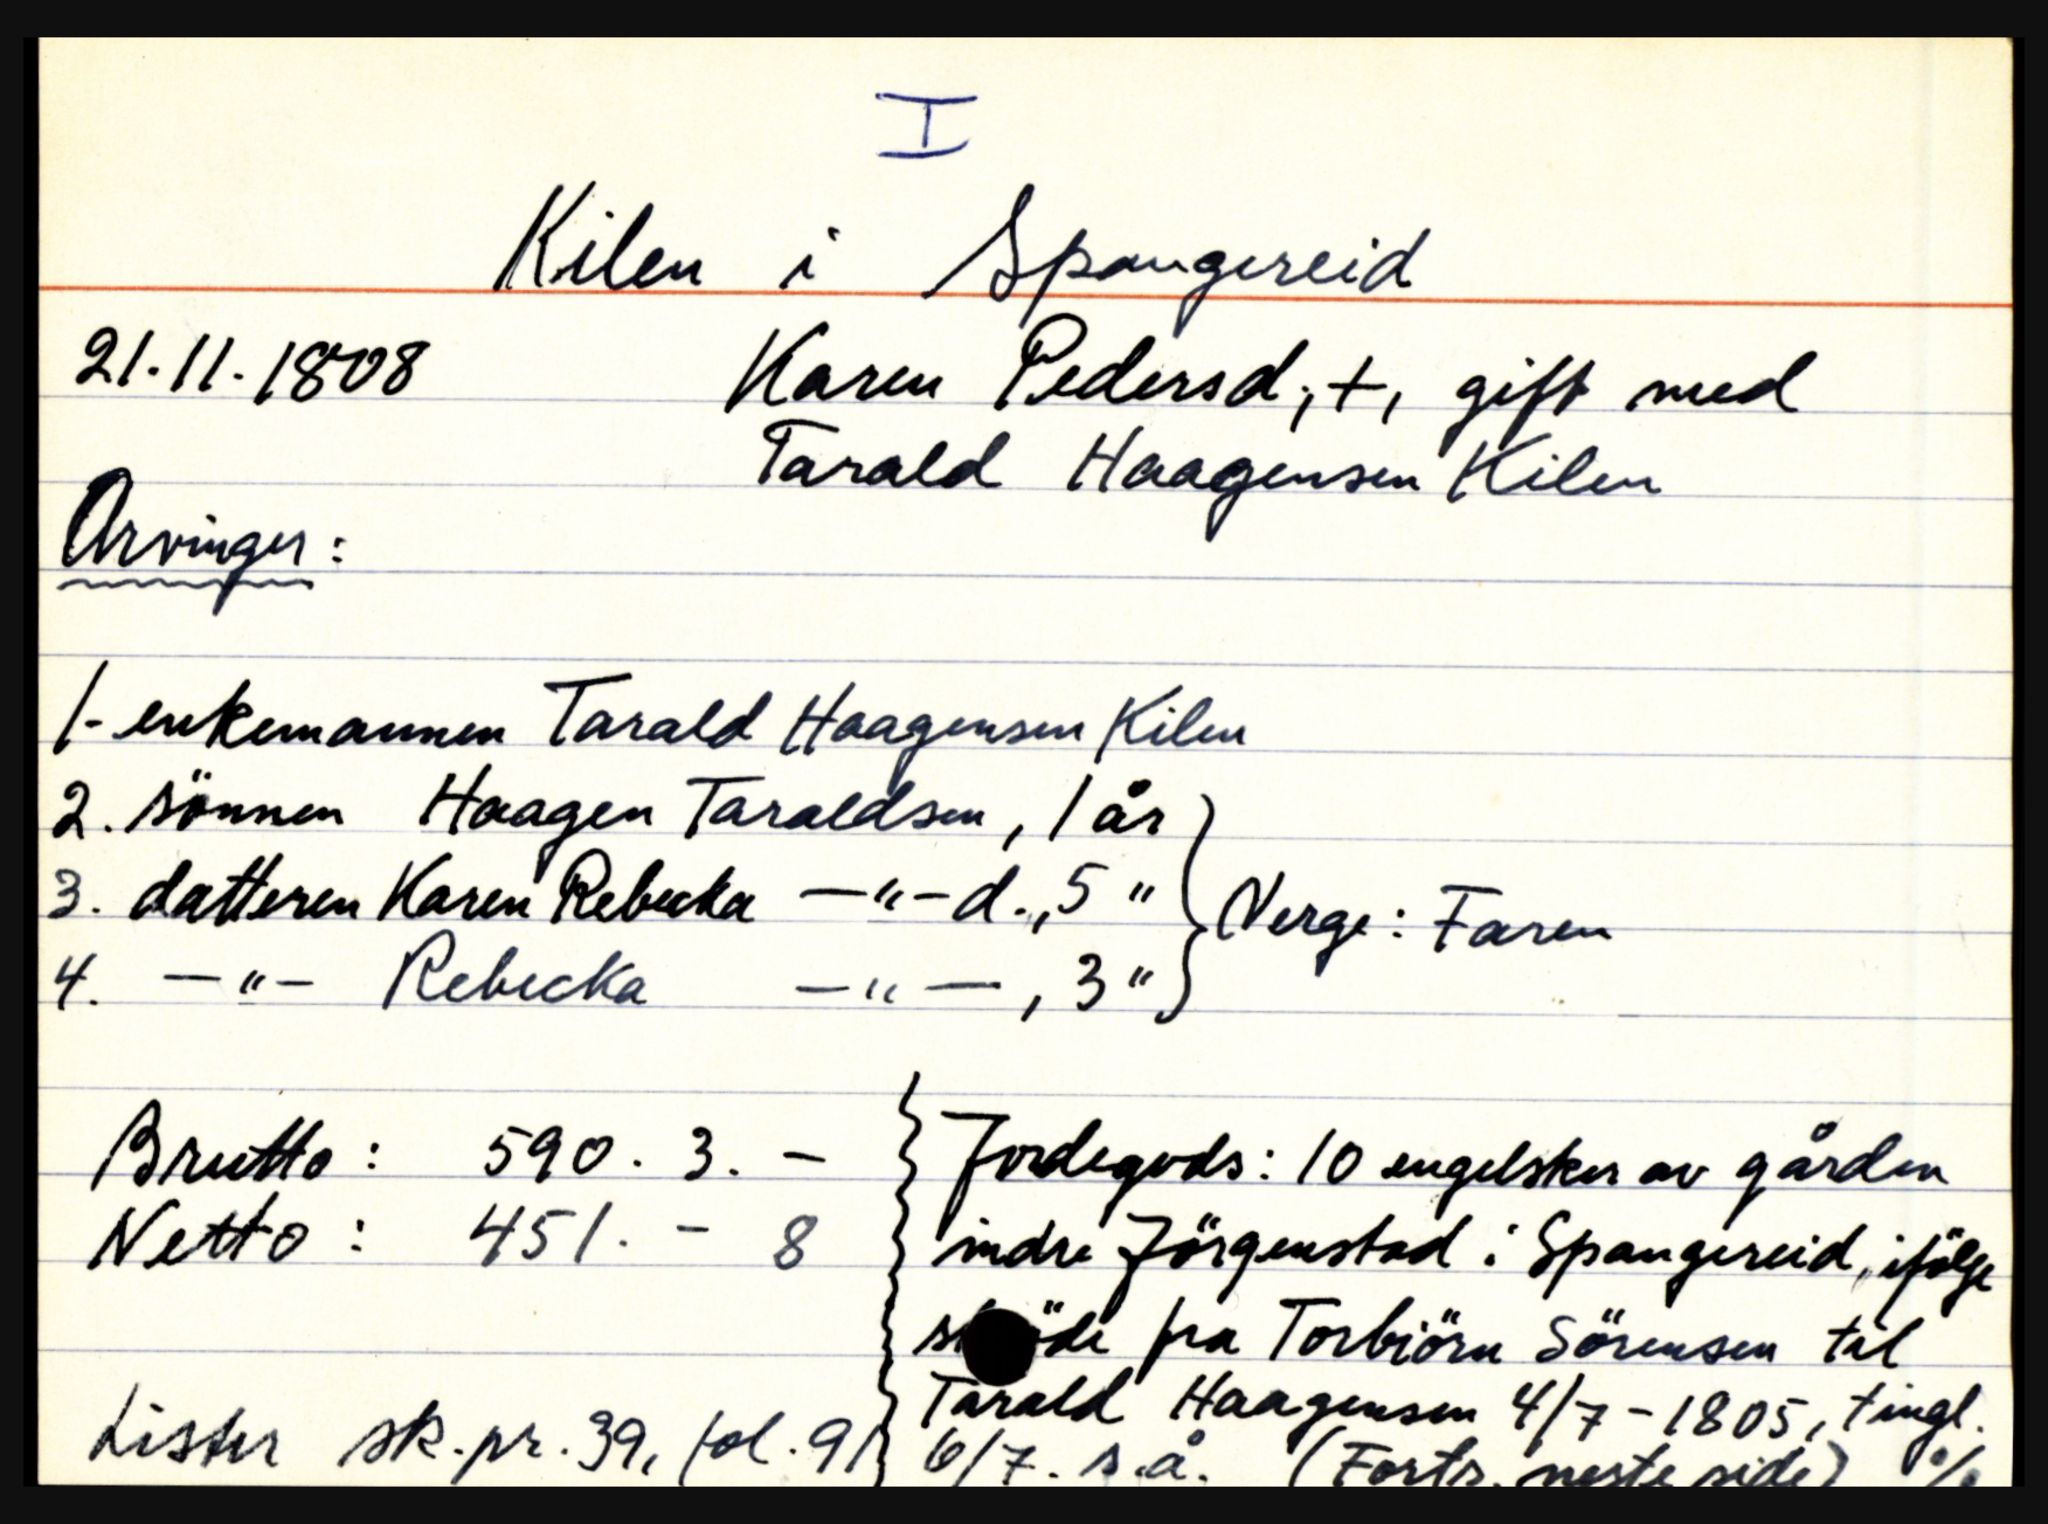 I
Kilen i Spangereid
21.11.1808 Karen Pedersd., +, gift med
Tarald Haagensen Kilen
Arvinger:
1- enkemannen Tarald Haagensen Kilen
2. sönnen Haagen Taraldsen, 1 år
3. datteren Karen Rebecka —"— d., 5 " Verge: Faren
4. —"— Rebecka —"—, 3 "
Brutto: 590. 3. -
Netto: 451. - 8
Lister sk.pr. 39, fol. 91
Jordegods: 10 engelsker av gården
indre Jörgenstad i Spangereid, ifölge
skjöde fra Torbiörn Sörensen til
Tarald Haagensen 4/7-1805, tingl.
6/7. s.å. (Forts. neste side) ./.